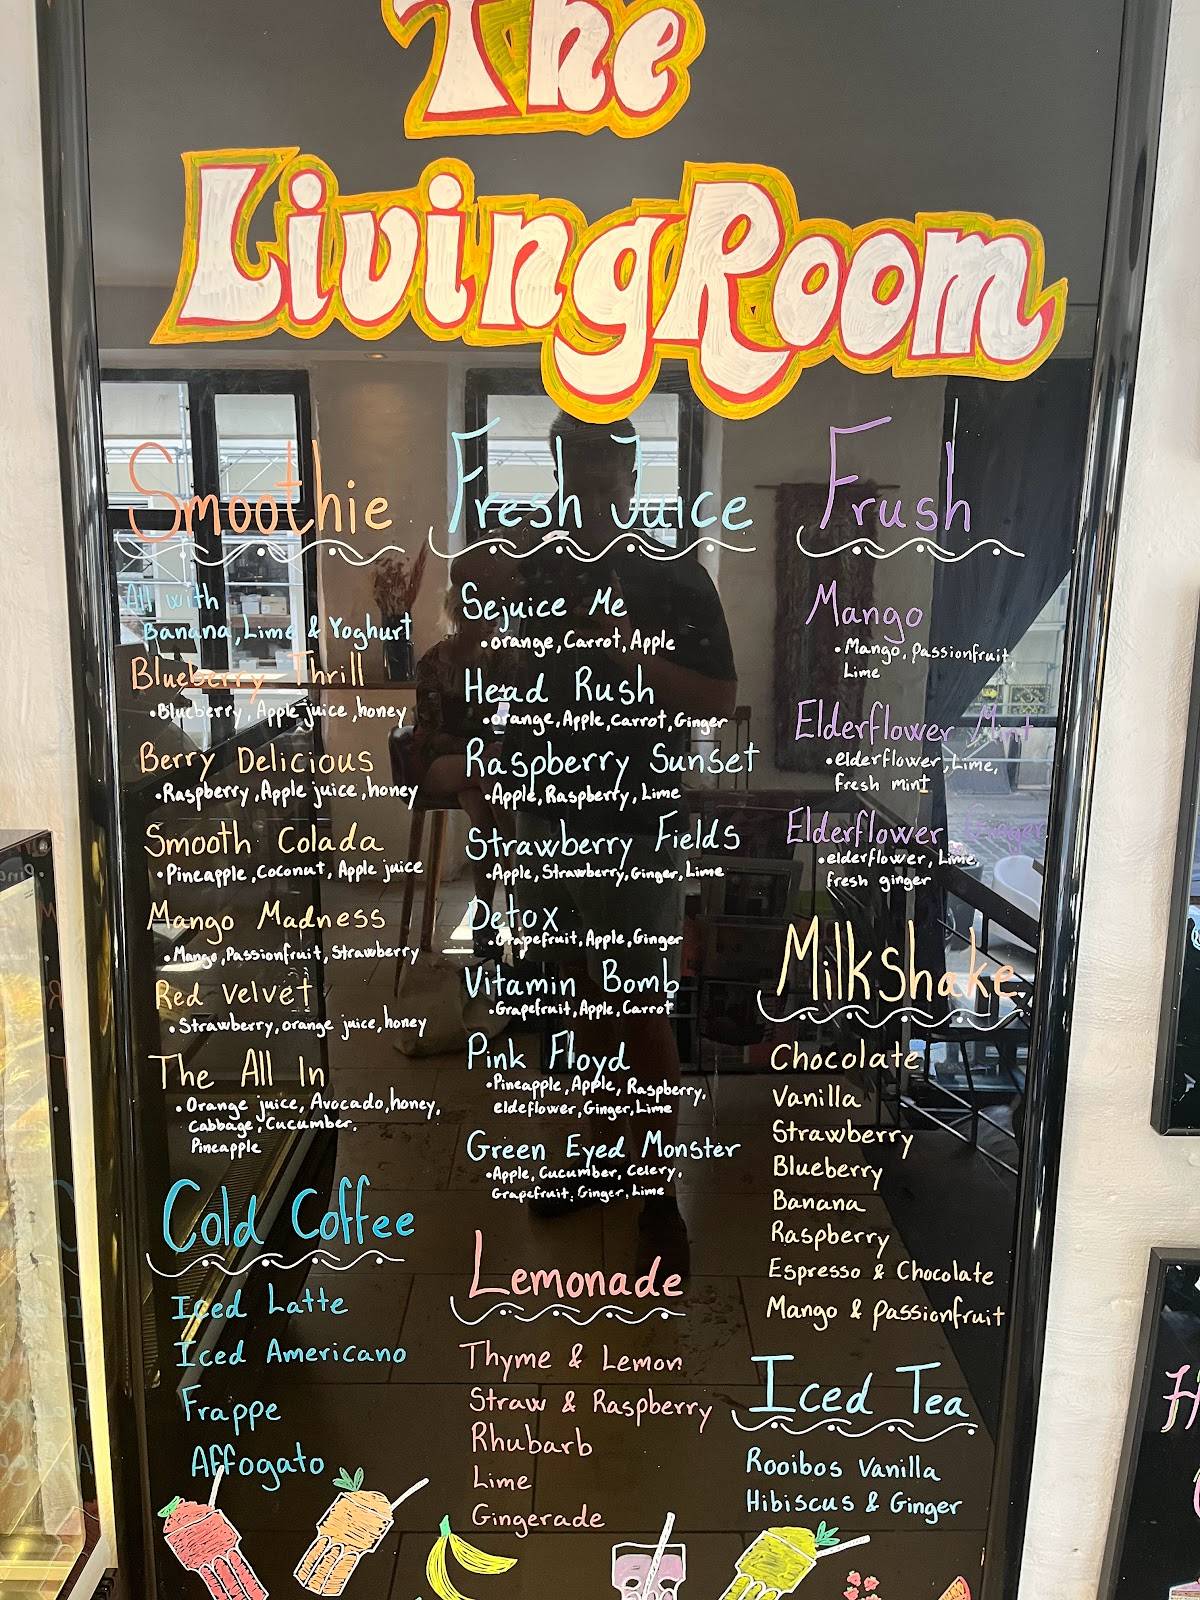 The
LivingRoom
Smoothie
All with
Banana, Lime & Yoghurt
Blueberry Thrill
•Blueberry, Apple juice, honey
Berry Delicious
•Raspberry, Apple juice, honey
Smooth Colada
•Pineapple, coconut, Apple juice
Mango Madness
•Mango, Passionfruit, Strawberry
Red Velvet
•Strawberry, orange juice, honey
The All In
•Orange juice, Avocado, honey,
Cabbage, Cucumber,
Pineapple
Cold Coffee
Iced Latte
Iced Americano
Frappe
Affogato
Fresh Juice
Sejuice Me
•orange, Carrot, Apple
Head Rush
•orange, Apple, carrot, Ginger
Raspberry Sunset
•Apple, Raspberry, Lime
Strawberry Fields
•Apple, Strawberry, Ginger, Lime
Detox
•Grapefruit, Apple, Ginger
Vitamin Bomb
•Grapefruit, Apple, Carrot
Pink Floyd
•Pineapple, Apple, Raspberry,
eldeflower, Ginger, Lime
Green Eyed Monster
•Apple, Cucumber, Celery,
Grapefruit, Ginger, Lime
Lemonade
Thyme & Lemon
Straw & Raspberry
Rhubarb
Lime
Gingerade
Frush
Mango
•Mango, passionfruit
Lime
Elderflower Mint
•elderflower, Lime,
fresh mint
Elderflower Ginger
•elderflower, Lime,
fresh ginger
Milkshake
Chocolate
Vanilla
Strawberry
Blueberry
Banana
Raspberry
Espresso & Chocolate
Mango & passionfruit
Iced Tea
Rooibos Vanilla
Hibiscus & Ginger